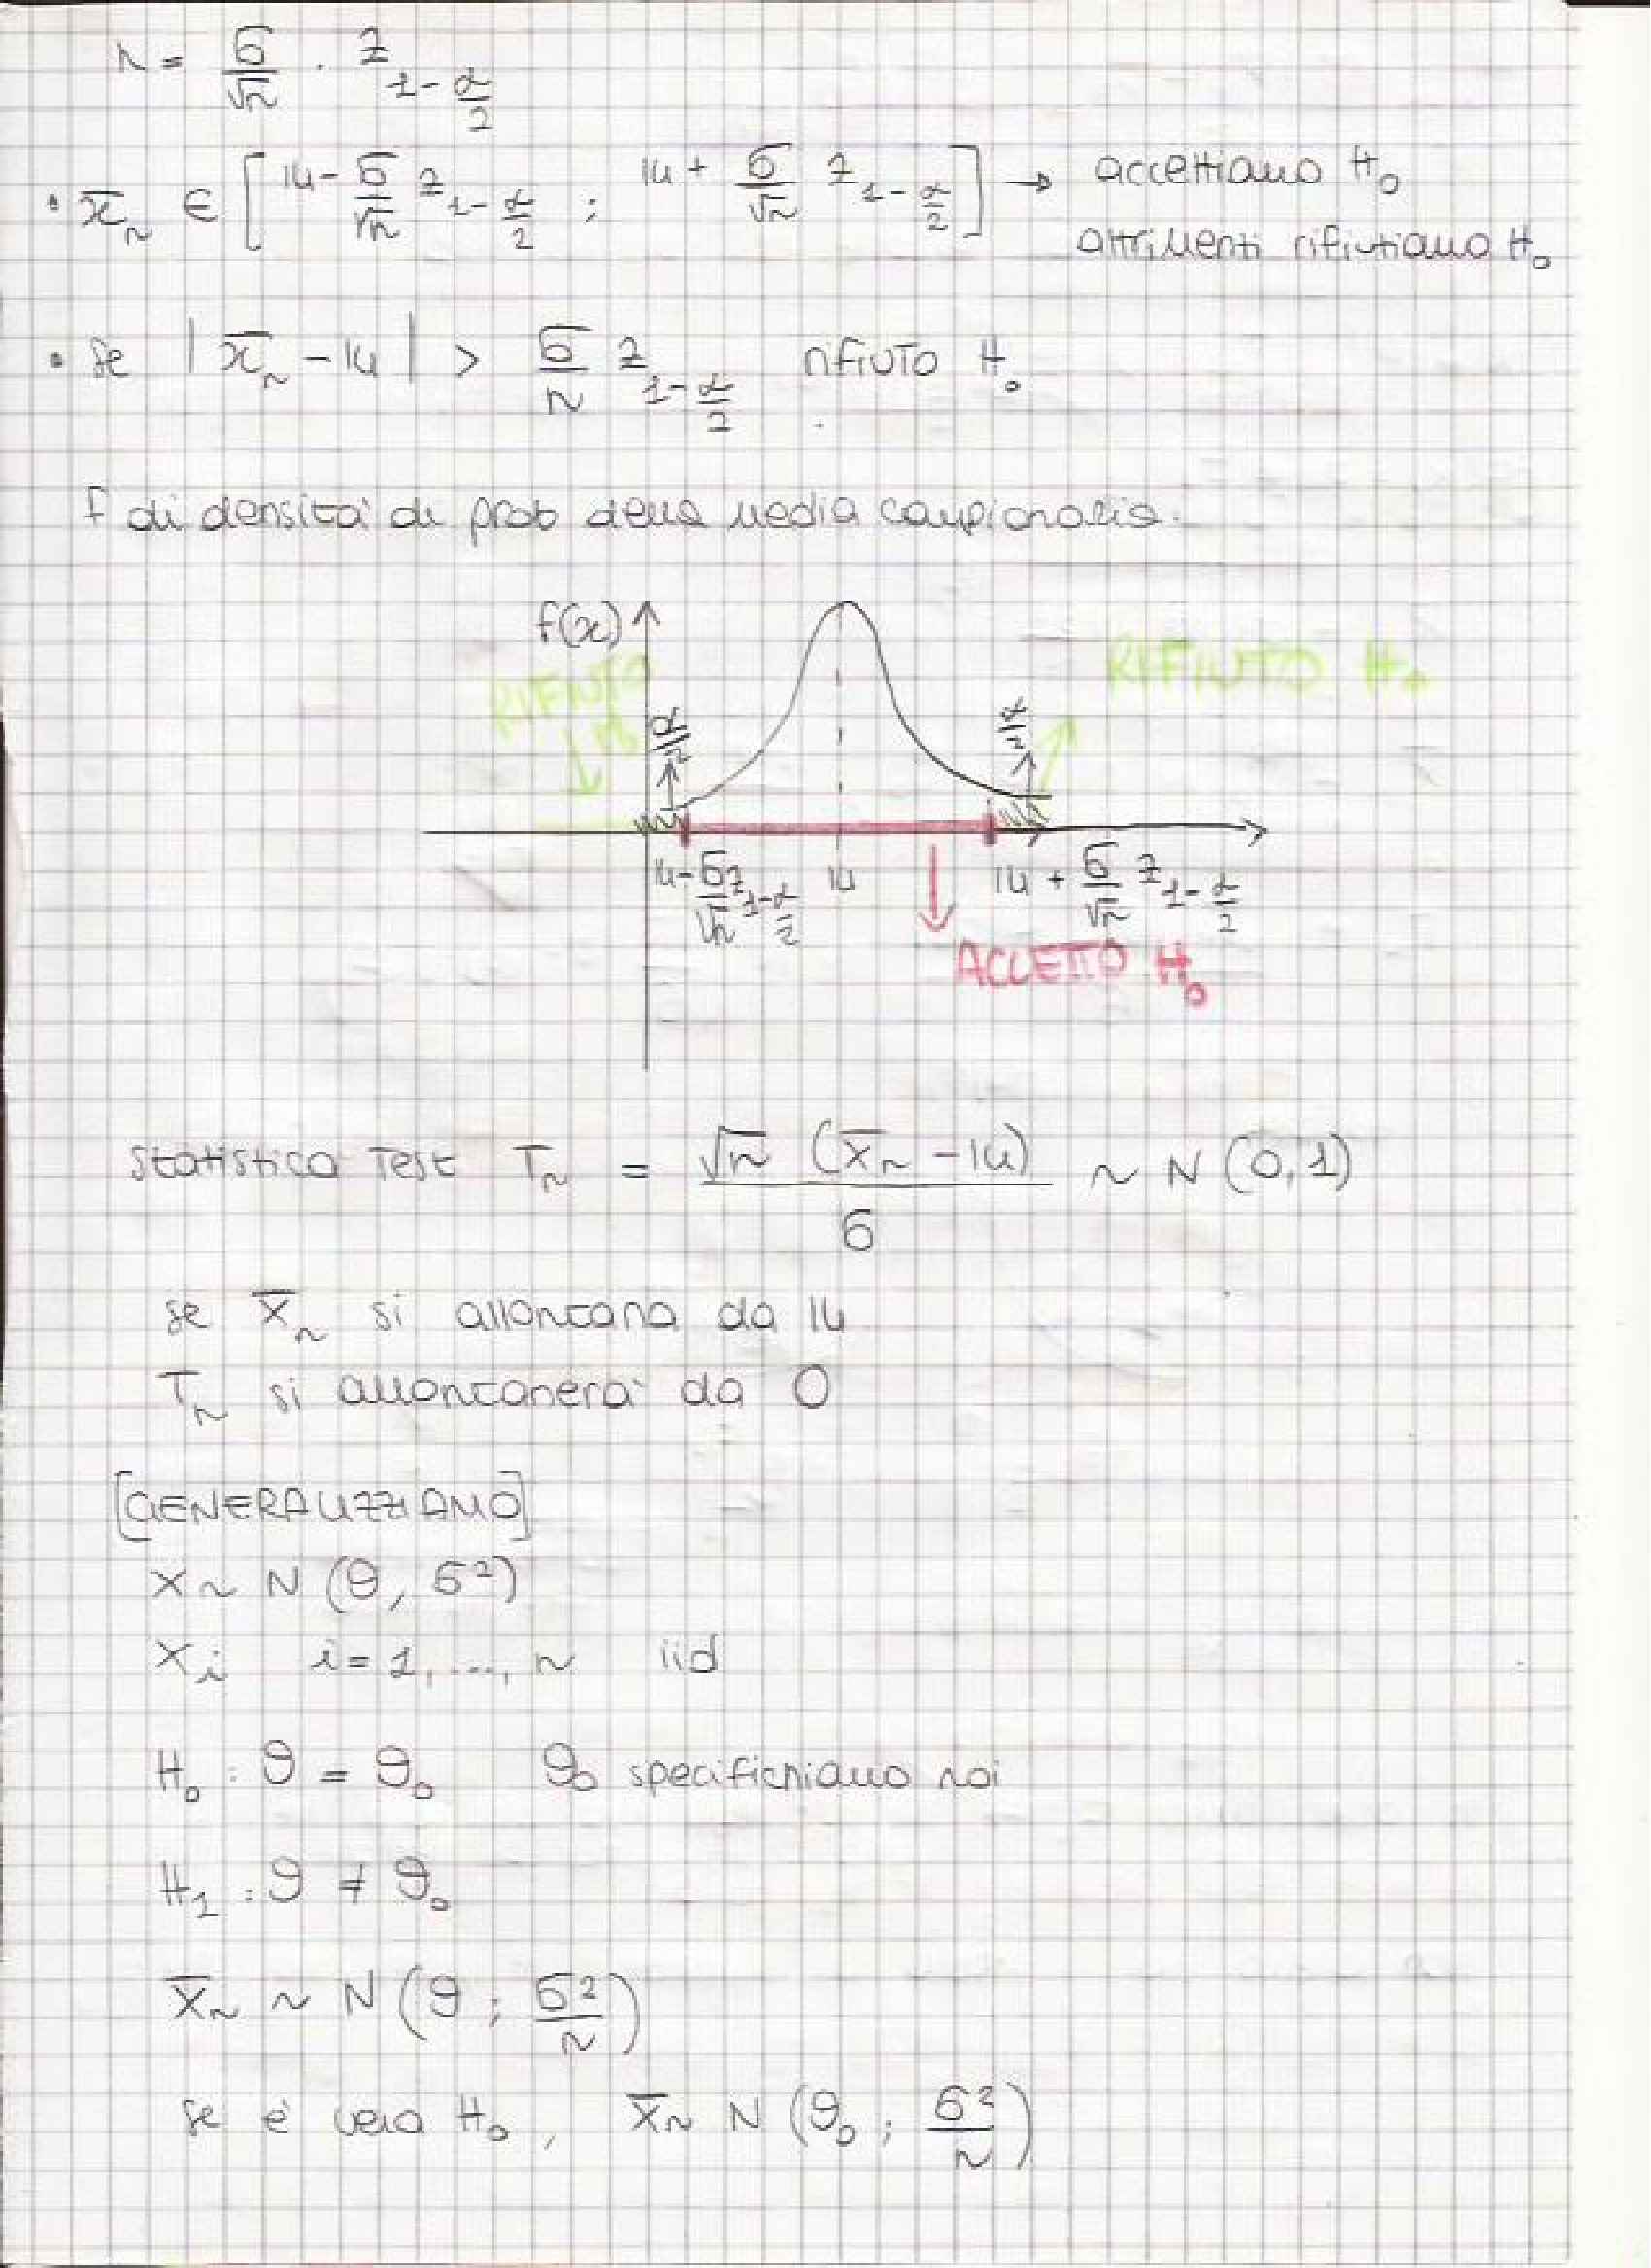 r = σ/√n · z_{1-α/2}
• x̄_n ∈ [14 - σ/√n z_{1-α/2} ; 14 + σ/√n z_{1-α/2}] → accettiamo H₀
altrimenti rifiutiamo H₀
• se |x̄_n - 14| > σ/n z_{1-α/2} rifiuto H₀
f di densità di prob della media campionaria.
f(x)
RIFIUTO
RIFIUTO H₀
α/2
α/2
14 - σ/√n z_{1-α/2}
14
14 + σ/√n z_{1-α/2}
ACCETTO H₀
statistica Test T_n = √n (x̄_n - 14) / σ ~ N(0,1)
se x̄_n si allontana da 14
T_n si allontanerà da 0
[GENERALIZZIAMO]
X ~ N(θ, σ²)
X_i i = 1, ..., n iid
H₀ : θ = θ₀ θ₀ specifichiamo noi
H₁ : θ ≠ θ₀
x̄_n ~ N(θ ; σ²/n)
se è vera H₀, x̄ ~ N(θ₀ ; σ²/n)